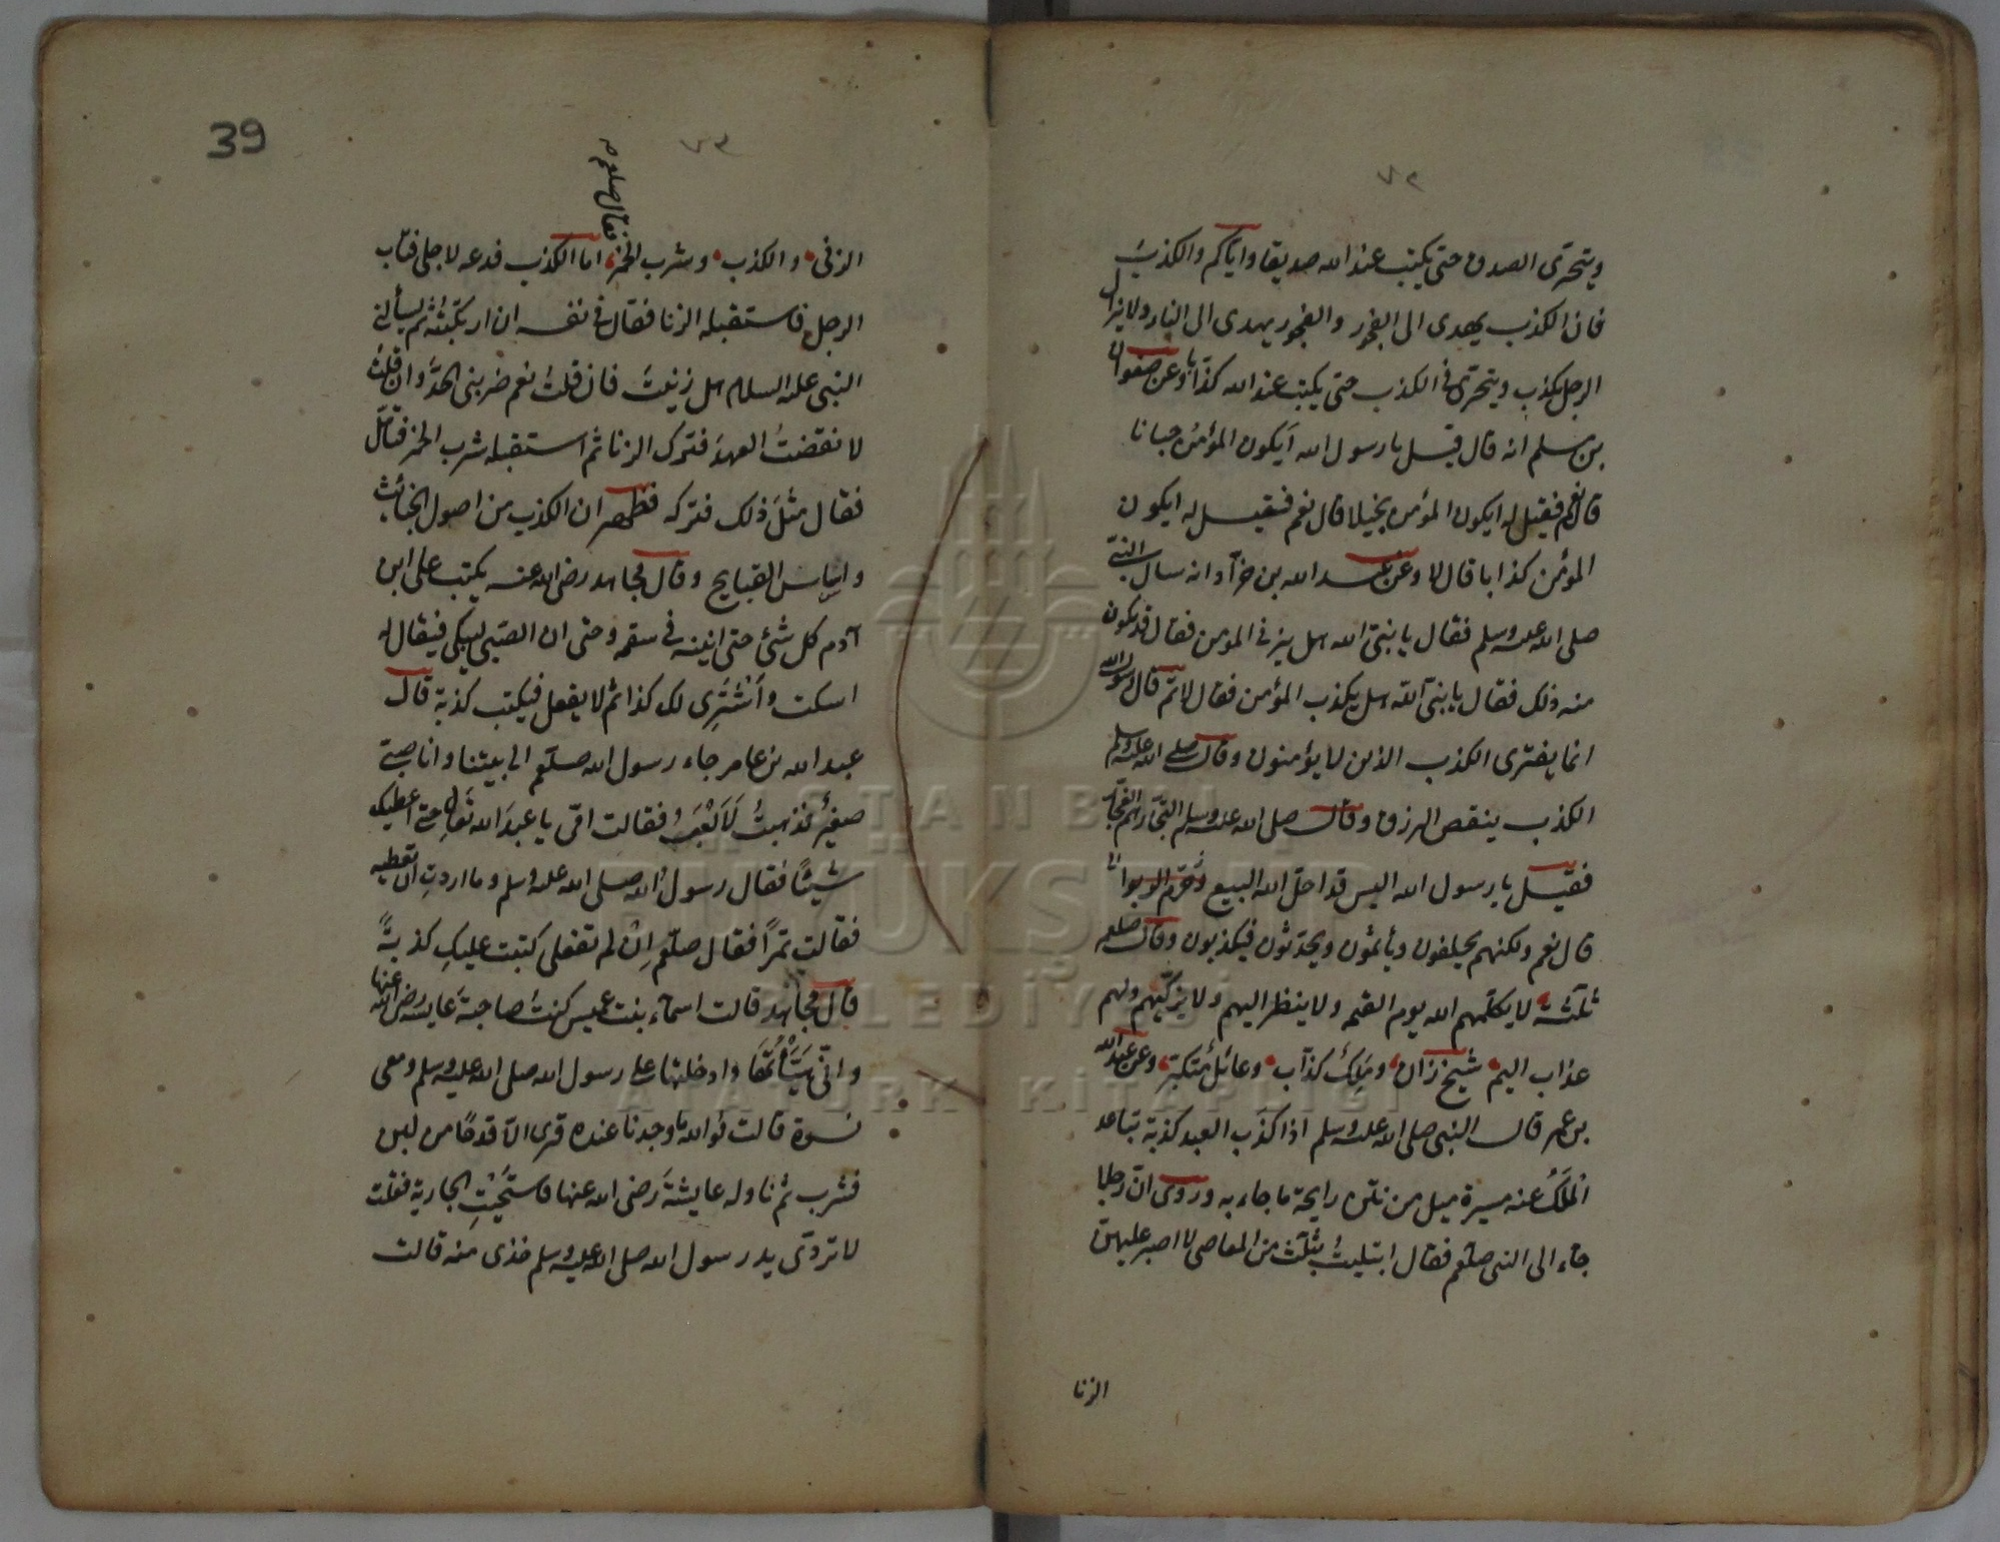 ٧٢
ويتحرى الصدق حتى يكتب عند الله صديقا واياكم والكذب
فان الكذب يهدى الى الفجور والفجور يهدى الى النار ولا يزال
الرجل يكذب ويتحرى فى الكذب حتى يكتب عند الله كذابا وعن صفوان
بن سلم انه قال قيل يا رسول الله ايكون المؤمن جبانا
قال نعم فقيل له ايكون المؤمن بخيلا قال نعم فقيل له ايكون
المؤمن كذابا قال لا وعن عبد الله بن خرآد انه سال النبى
صلى الله عليه وسلم فقال يا نبى الله هل يزنى المؤمن فقال قد يكون
منه ذلك فقال يا نبى الله هل يكذب المؤمن فقال لا ثم قال رسول الله
انما يفترى الكذب الذين لا يؤمنون وقال صلى الله عليه وسلم
الكذب ينقص الرزق وقال صلى الله عليه وسلم التجار هم الفجار
فقيل يا رسول الله اليس قد احل الله البيع وحرم الربوا
قال نعم ولكنهم يحلفون ويأثمون ويحدثون فيكذبون وقال صلعم
ثلثة لا يكلمهم الله يوم القيمة ولا ينظر اليهم ولا يزكيهم ولهم
عذاب اليم شيخ زان وملك كذاب وعائل متكبر وعن عبد الله
بن عمر قال النبى صلى الله عليه وسلم اذا كذب العبد كذبة تباعد
الملك عنه مسيرة ميل من نتن رايحة ما جاء به وروى ان رجلا
جاء الى النبى صلعم فقال ابتليت بثلث من المعاصى لا اصبر عليهن
الزنا
39
٧٣
فقال صلعم
الزنى والكذب وشرب الخمر اما الكذب فدعه لاجلى فتاب
الرجل فاستقبله الزنا فقال فى نفسه ان ارتكبته ثم يسألنى
النبى عليه السلام هل زنيت فان قلت نعم ضربنى الحد وان قلت
لا نقضت العهد فترك الزنا ثم استقبله شرب الخمر فتأمل
فقال مثل ذلك فتركه فظهر ان الكذب من اصول الخبائث
واساس القبايح وقال مجاهد رضى الله عنه يكتب على ابن
آدم كل شئ حتى انينه فى سقمه وحتى ان الصبى ليبكى فيقال له
اسكت واشترى لك كذا ثم لا يفعل فيكتب كذبة قال
عبد الله بن عامر جاء رسول الله صلعم الى بيتنا وانا صبى
صغير فذهبت لالعب فقالت امى يا عبد الله تعال حتى اعطيك
شيئا فقال رسول الله صلى الله عليه وسلم وما اردت ان تعطيه
فقالت تمرا فقال صلعم ان لم تفعلى كتبت عليك كذبة
قال مجاهد قالت اسماء بنت عميس كنت صاحبة عايشه رضى الله عنها
وانى هيأتها وادخلتها على رسول الله صلى الله عليه وسلم ومعى
نسوة قالت فوالله ما وجدنا عنده قرى الا قدحا من لبن
فشرب ثم ناوله عايشة رضى الله عنها فاستحيت الجارية فقلت
لا تردى يد رسول الله صلى الله عليه وسلم خذى منه قالت
ISTANBUL
BÜYÜKŞEHİR
BELEDİYESİ
ATATÜRK KİTAPLIĞI